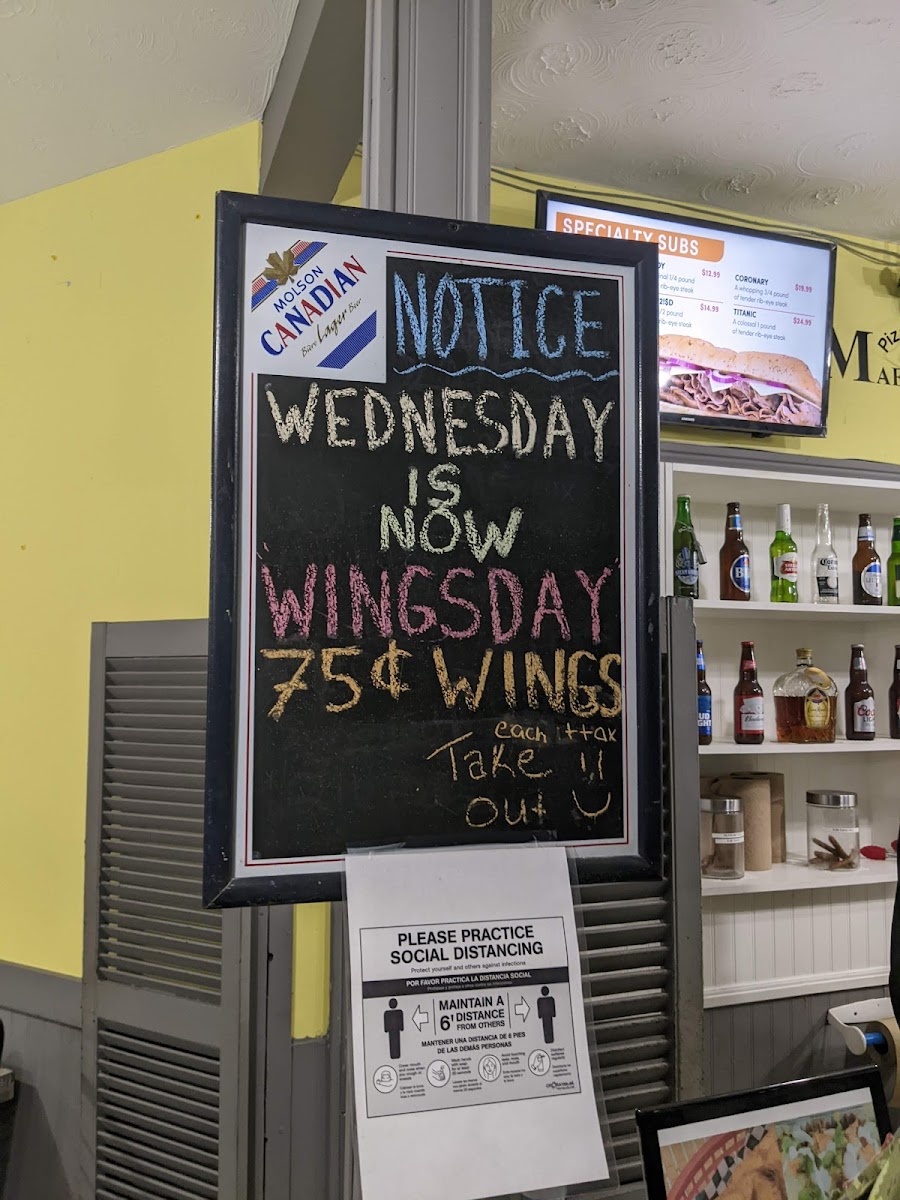 MOLSON
CANADIAN
Bière Lager Beer
NOTICE
WEDNESDAY
IS
NOW
WINGSDAY
75¢ WINGS
each
Take
out
SPECIALTY SUBS
$12.99
1/4 pound
rib-eye steak
$14.99
/2 pound
rib-eye steak
CORONARY
$19.99
A whopping 3/4 pound
of tender rib-eye steak
TITANIC
$24.99
A colossal 1 pound
of tender rib-eye steak
BUD
LIGHT
PLEASE PRACTICE
SOCIAL DISTANCING
Protect yourself and others against infections
POR FAVOR PRACTICA LA DISTANCIA SOCIAL
MAINTAIN A
6' DISTANCE
FROM OTHERS
MANTENER UNA DISTANCIA DE 6 PIES
DE LAS DEMÁS PERSONAS